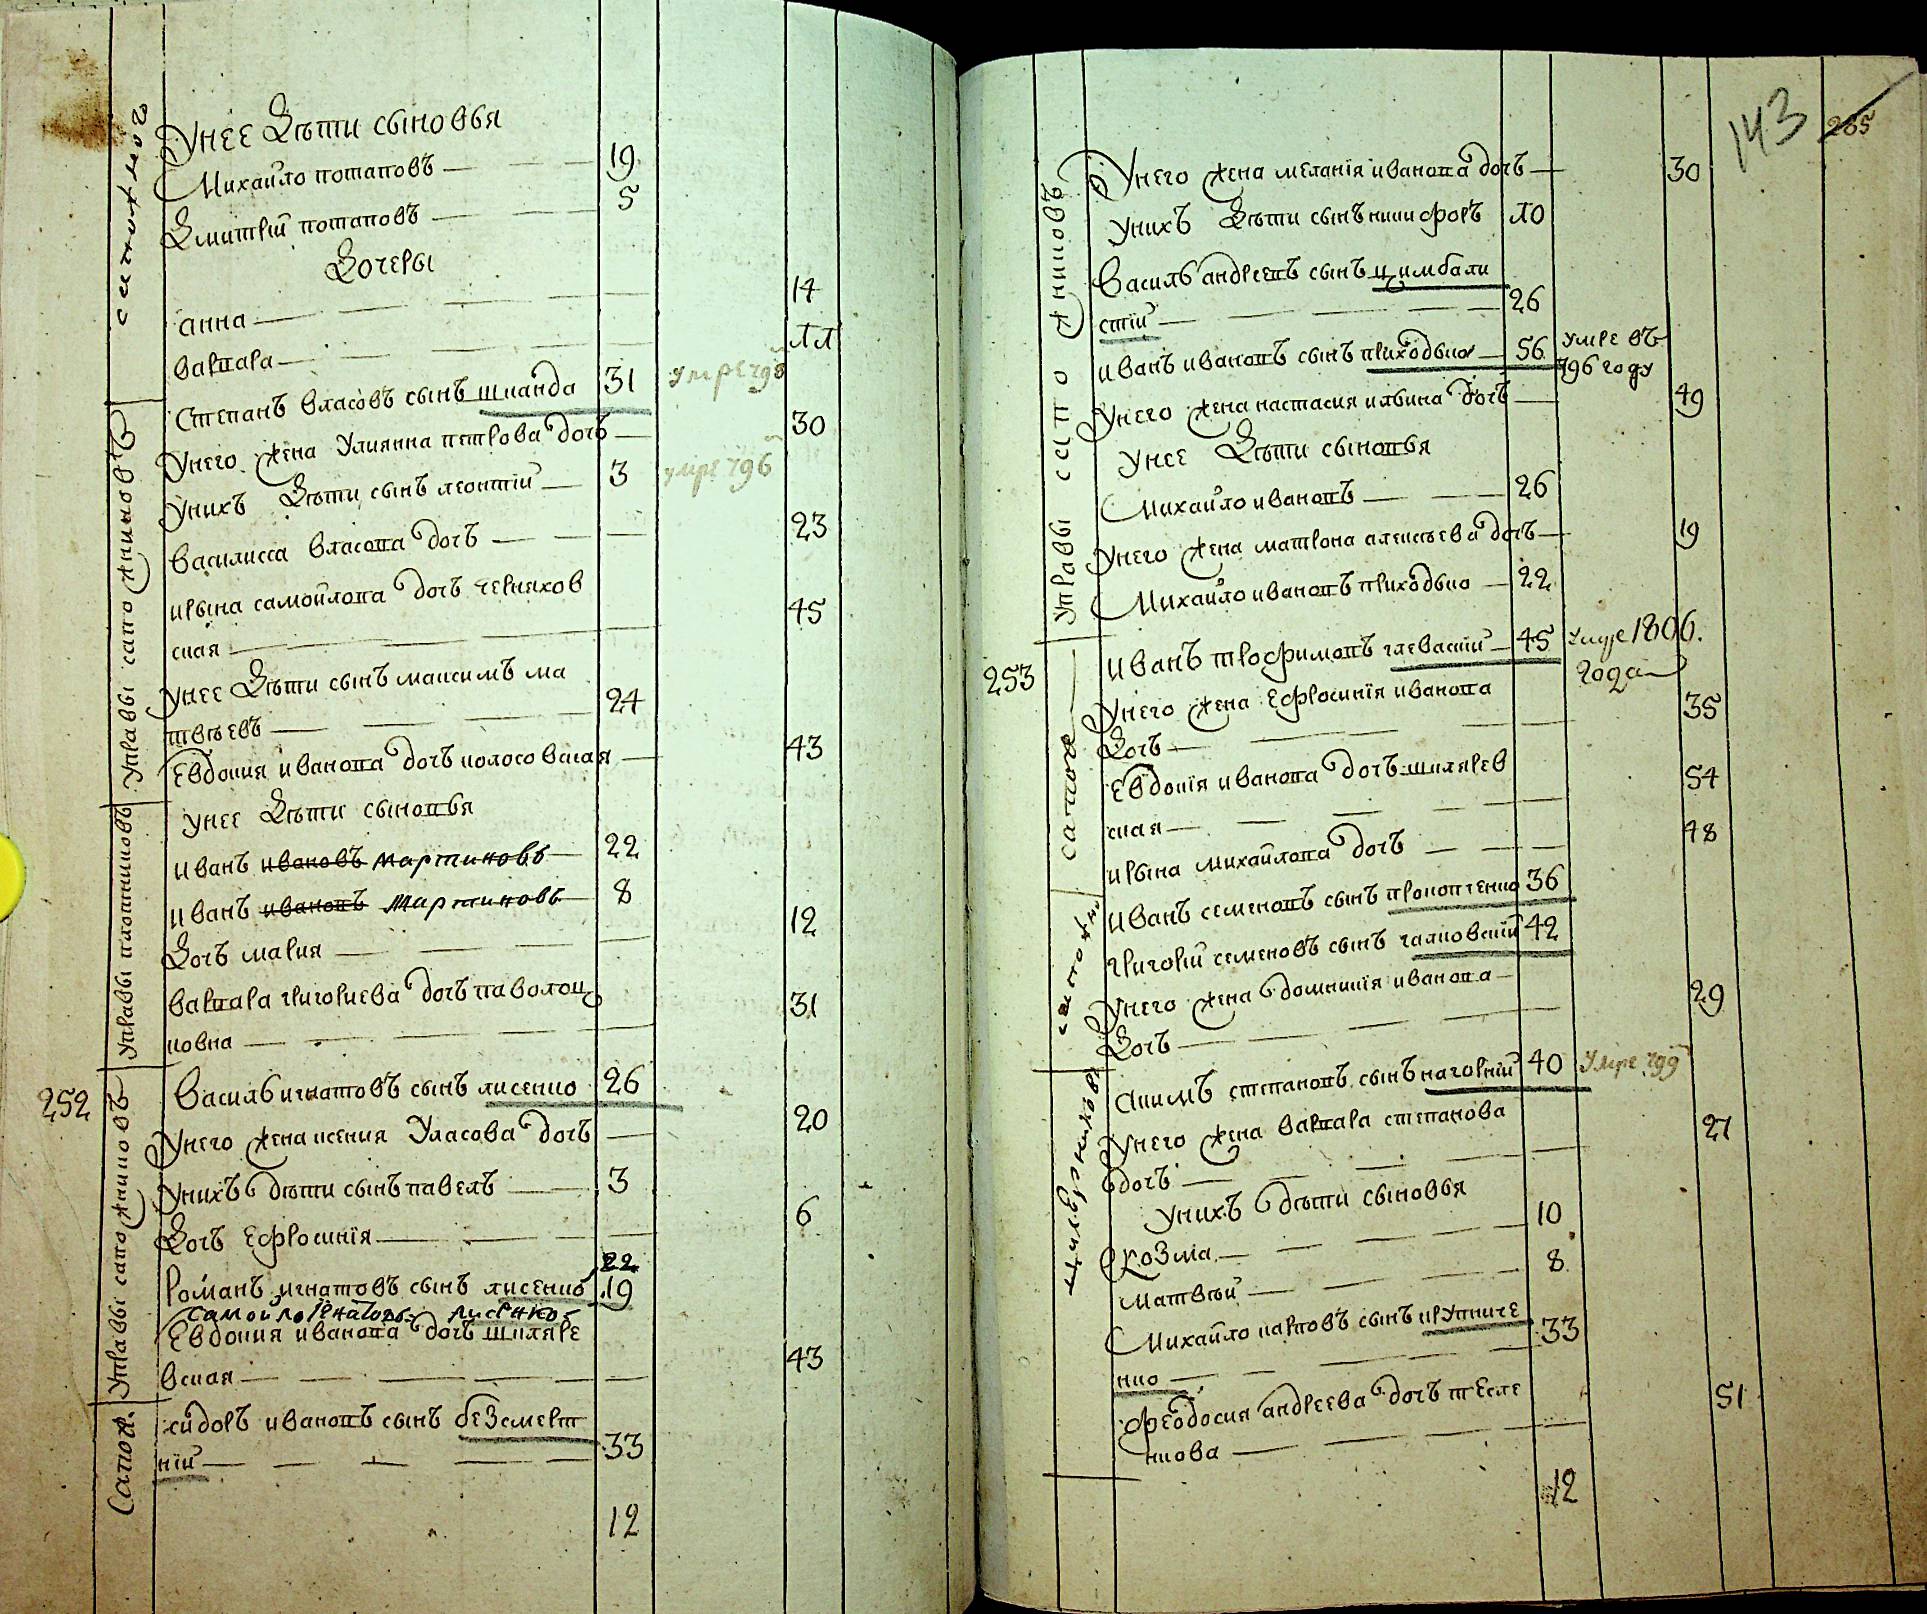 Унее Дѣти сыновья
Михайло потаповъ — 19
Дмитрій потаповъ — 5
Дочеры
анна — 14
варвара — 11
Степанъ власовъ сынъ шканда 31 умре 798
Унего жена Улиянна петрова дочъ — 30
Унихъ Дѣти сынъ леонтій — 3 умре 796
василисса власова дочъ — 23
ирына самойлова дочъ черняхов
ская — 45
Унее Дѣти сынъ максимъ ма
твѣевъ — 24
Евдокия иванова дочъ колосовская — 43
унее Дѣти сыновья
иванъ ивановъ мартиновъ — 22
иванъ ивановъ мартиновъ — 8
Дочъ мария — 12
варвара григориева дочъ паволоц
ковна — 31
252
Василь игнатовъ сынъ лисенко 26
Унего жена ксения Уласова дочъ — 20
Унихъ дѣти сынъ павелъ — 3
Дочъ Ефросинія — 6
22
Романъ игнатовъ сынъ лисенко 19
Самойло Игнатовъ лисенко
Евдокия иванова дочъ шкляре
вская — 43
сидоръ ивановъ сынъ безсмерт
ній — 33
12
сапожног
Управы сапожниковъ
Управы ткатчиковъ
Управы сапожниковъ
Сапож.
143
285
Унего жена меланія иванова дочъ — 30
Унихъ Дѣти сынъ никифоръ 10
Василь андреевъ сынъ цимбали
стій — 26
иванъ ивановъ сынъ приходько — 56 умре въ
796 году
Унего жена настасия илвина дочъ — 49
Унее Дѣти сыновья
Михайло ивановъ — 26
Унего жена матрона алексѣева дочъ — 19
Михайло ивановъ приходько — 22
253
Иванъ трофимовъ глеваскій — 45 умре 1806.
года
Унего жена Ефросинія иванова
Дочъ — 35
Евдокія иванова дочъ шклярев
ская — 54
ирына михайлова дочъ — 48
Иванъ семеновъ сынъ прокопченко 36
григорій семеновъ сынъ галковскій 42
Унего жена домникія иванова —
Дочъ — 29
Акимъ степановъ сынъ нагорній 40 Умре 799
Унего жена варвара степанова
дочъ — 27
Унихъ дѣти сыновья
козма — 10
матвѣй — 8
Михайло карповъ сынъ крупниче
нко — 33
феодосия андреева дочъ тесле
нкова — 51
12
Управы сапожниковъ
сапож
сапожн
цилюрниковъ